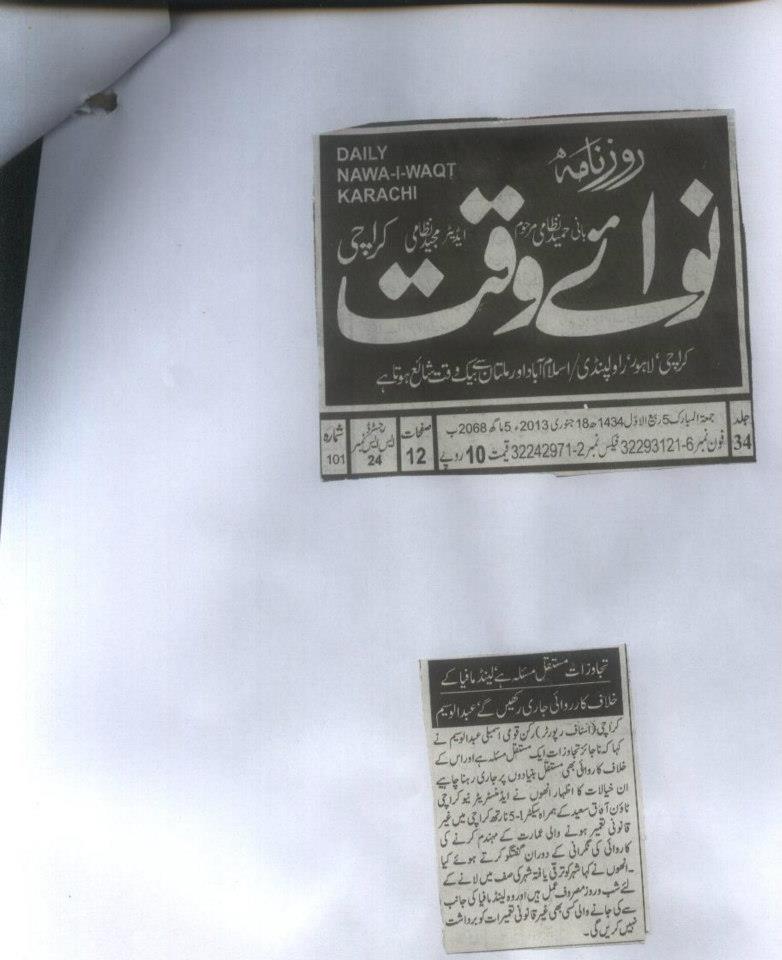 DAILY
NAWA-I-WAQT
KARACHI
روزنامہ
نوائے وقت
بانی حمید نظامی مرحوم
ایڈیٹر مجید نظامی
کراچی
کراچی، لاہور، راولپنڈی/اسلام آباد اور ملتان سے بیک وقت شائع ہوتا ہے
جلد 34
جمعۃ المبارک 5 ربیع الاوّل 1434ھ 18 جنوری 2013ء 5 ماگھ 2068 ب
فون نمبر 6-32293121 فیکس نمبر 2-32242971 قیمت 10 روپے
صفحات 12
رجسٹرڈ ایس ایس نمبر 24
شمارہ 101
تجاوزات مستقل مسئلہ ہے، لینڈ مافیا کے
خلاف کارروائی جاری رکھیں گے، عبدالوسیم
کراچی (اسٹاف رپورٹر) رکن قومی اسمبلی عبدالوسیم نے
کہا کہ ناجائز تجاوزات ایک مستقل مسئلہ ہے اور اس کے
خلاف کاروائی بھی مستقل بنیادوں پر جاری رہنا چاہیے
ان خیالات کا اظہار انھوں نے ایڈمنسٹریٹر نیو کراچی
ٹاؤن آفاق سعید کے ہمراہ سیکٹر 5-1 نارتھ کراچی میں غیر
قانونی تعمیر ہونے والی عمارت کے مہندم کرنے کی
کاروائی کی نگرانی کے دوران گفتگو کرتے ہوئے کیا
۔انھوں نے کہا شہر کو ترقی یافتہ شہر کی صف میں لانے کے
لئے شب و روز مصروف عمل ہیں اور وہ لینڈ مافیا کی جانب
سے کی جانے والی کسی بھی غیر قانونی تعمیرات کو برداشت
نہیں کریں گی۔